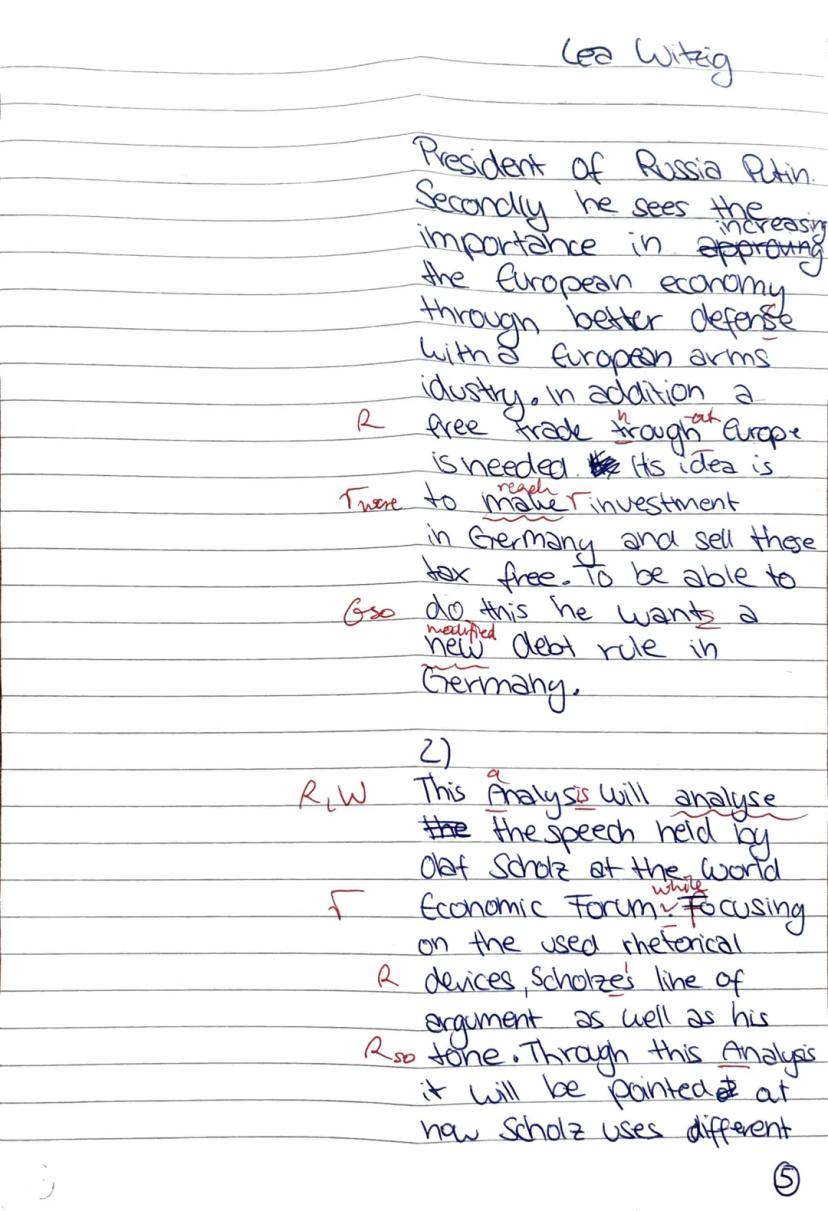 Lea Witzig
President of Russia Putin.
Secondly he sees the
increasing
importance in approving
the European economy
through better defense
with a European arms
idustry. In addition a
R free trade trough Europe
n out
is needed. Its idea is
reach
were to make investment
in Germany and sell these
tax free. To be able to
Gso do this he wants a
modified
new debt rule in
Germany.
2)
a
R, W This Analysis will analyse
the the speech held by
Olaf Scholz at the World
while
Economic Forum. Focusing
on the used rhetorical
R devices, Scholze's line of
argument as well as his
Rso tone. Through this Analysis
it will be pointed at
how Scholz uses different
5